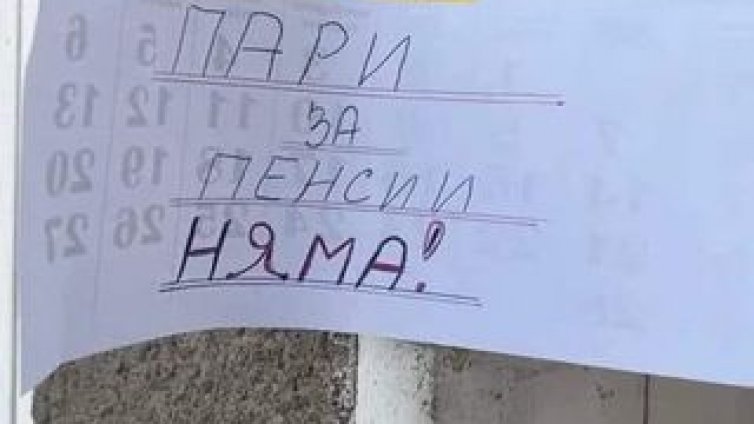 ПАРИ
ЗА
ПЕНСИИ
НЯМА!